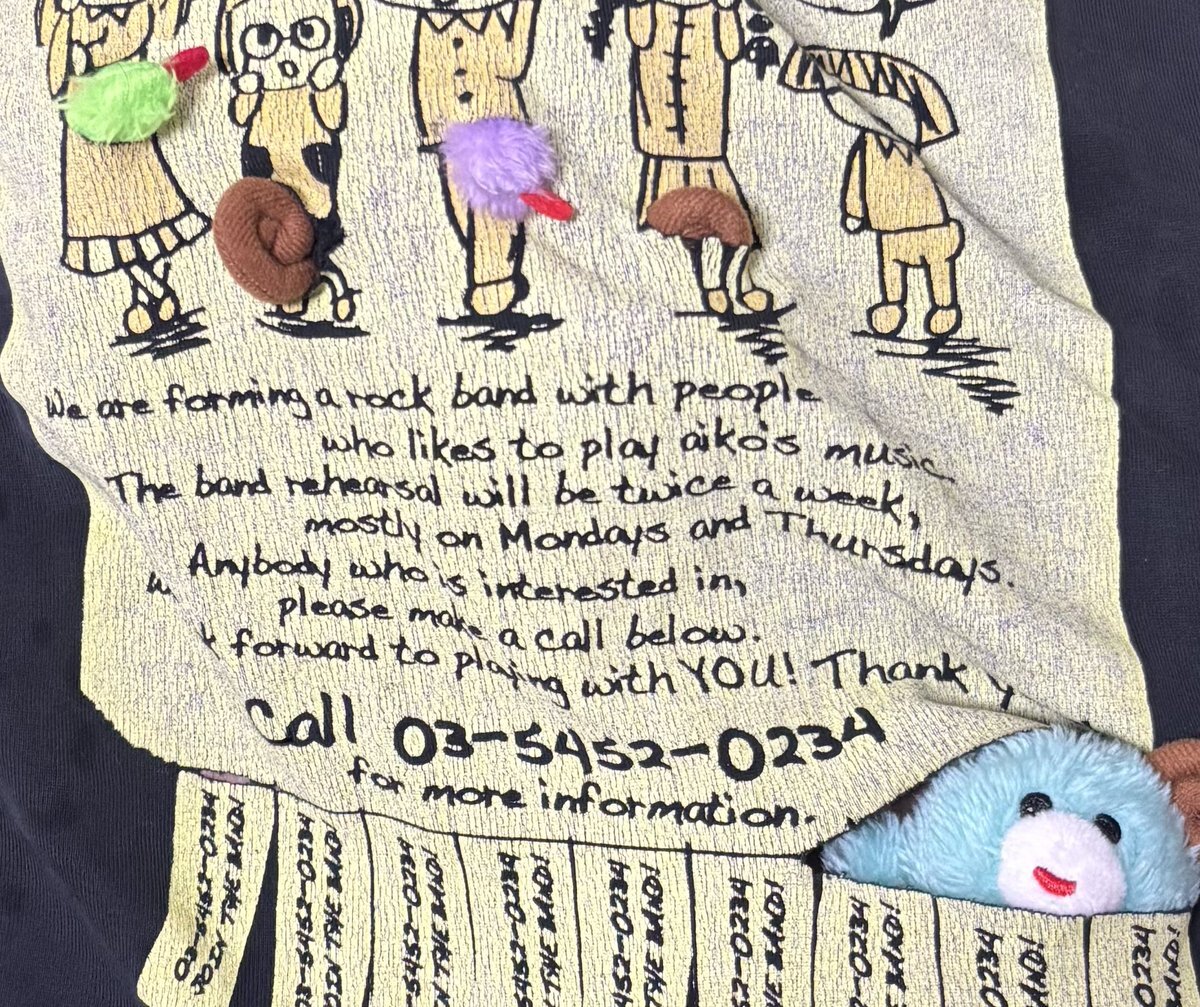 We are forming a rock band with people
who likes to play aiko's music
The band rehearsal will be twice a week,
mostly on Mondays and Thursdays.
Anybody who's interested in,
please make a call below.
forward to playing with YOU! Thank
Call 03-5452-0234
for more information.
03-5452-0234
JOIN THE BAND!
03-5452-0234
JOIN THE BAND!
-5452-0234
THE BAND!
5452-0234
THE BAND!
452-0234
THE BAND!
52-0234
THE BAND!
-0234
BAND!
0234
BAND!
0234
BAND!